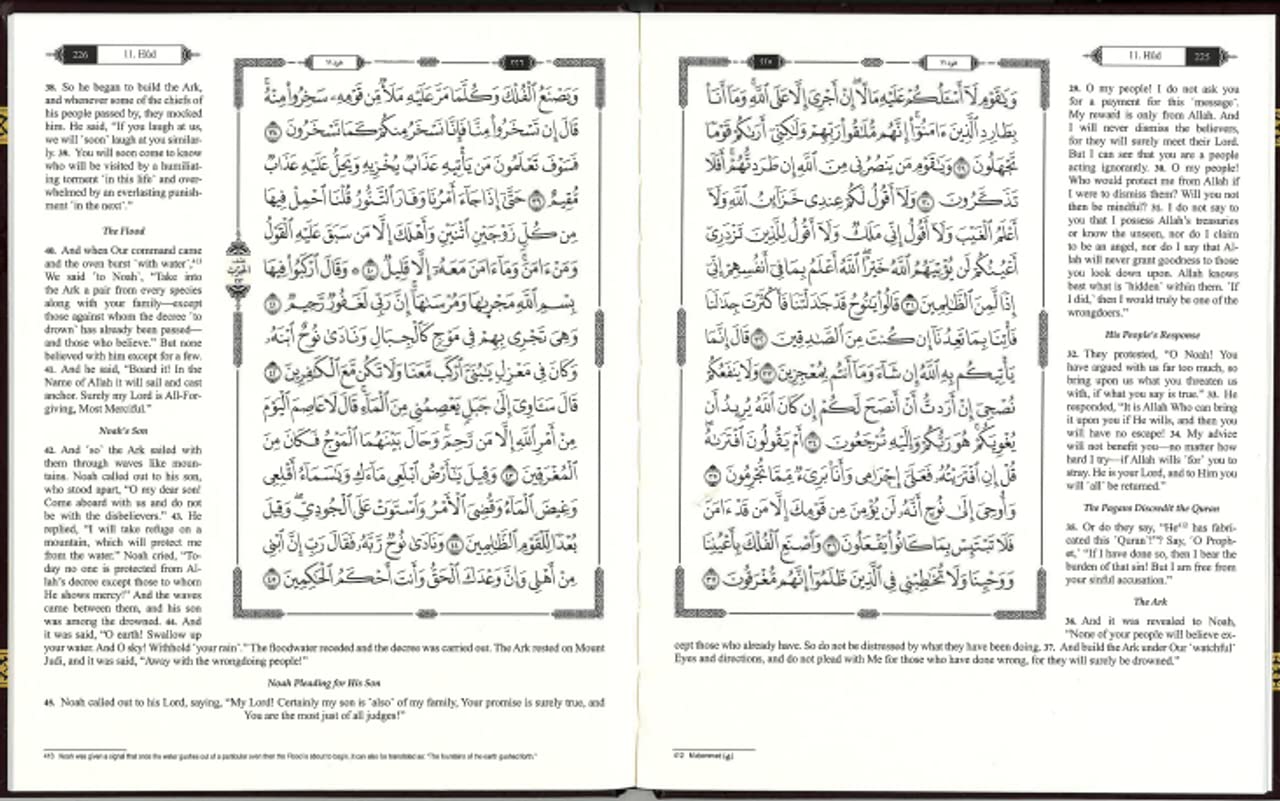 11. Hûd 225
هود ١١
٢٢٥
وَيَٰقَوْمِ لَآ أَسْـَٔلُكُمْ عَلَيْهِ مَالًا ۖ إِنْ أَجْرِىَ إِلَّا عَلَى ٱللَّهِ ۚ وَمَآ أَنَا۠
بِطَارِدِ ٱلَّذِينَ ءَامَنُوٓا۟ ۚ إِنَّهُم مُّلَٰقُوا۟ رَبِّهِمْ وَلَٰكِنِّىٓ أَرَىٰكُمْ قَوْمًا
تَجْهَلُونَ ٢٩ وَيَٰقَوْمِ مَن يَنصُرُنِى مِنَ ٱللَّهِ إِن طَرَدتُّهُمْ ۚ أَفَلَا
تَذَكَّرُونَ ٣٠ وَلَآ أَقُولُ لَكُمْ عِندِى خَزَآئِنُ ٱللَّهِ وَلَآ
أَعْلَمُ ٱلْغَيْبَ وَلَآ أَقُولُ إِنِّى مَلَكٌ وَلَآ أَقُولُ لِلَّذِينَ تَزْدَرِىٓ
أَعْيُنُكُمْ لَن يُؤْتِيَهُمُ ٱللَّهُ خَيْرًا ۖ ٱللَّهُ أَعْلَمُ بِمَا فِىٓ أَنفُسِهِمْ ۖ إِنِّىٓ
إِذًا لَّمِنَ ٱلظَّٰلِمِينَ ٣١ قَالُوا۟ يَٰنُوحُ قَدْ جَٰدَلْتَنَا فَأَكْثَرْتَ جِدَٰلَنَا
فَأْتِنَا بِمَا تَعِدُنَآ إِن كُنتَ مِنَ ٱلصَّٰدِقِينَ ٣٢ قَالَ إِنَّمَا
يَأْتِيكُم بِهِ ٱللَّهُ إِن شَآءَ وَمَآ أَنتُم بِمُعْجِزِينَ ٣٣ وَلَا يَنفَعُكُمْ
نُصْحِىٓ إِنْ أَرَدتُّ أَنْ أَنصَحَ لَكُمْ إِن كَانَ ٱللَّهُ يُرِيدُ أَن
يُغْوِيَكُمْ ۚ هُوَ رَبُّكُمْ وَإِلَيْهِ تُرْجَعُونَ ٣٤ أَمْ يَقُولُونَ ٱفْتَرَىٰهُ ۖ
قُلْ إِنِ ٱفْتَرَيْتُهُۥ فَعَلَىَّ إِجْرَامِى وَأَنَا۠ بَرِىٓءٌ مِّمَّا تُجْرِمُونَ ٣٥
وَأُوحِىَ إِلَىٰ نُوحٍ أَنَّهُۥ لَن يُؤْمِنَ مِن قَوْمِكَ إِلَّا مَن قَدْ ءَامَنَ
فَلَا تَبْتَئِسْ بِمَا كَانُوا۟ يَفْعَلُونَ ٣٦ وَٱصْنَعِ ٱلْفُلْكَ بِأَعْيُنِنَا
وَوَحْيِنَا وَلَا تُخَٰطِبْنِى فِى ٱلَّذِينَ ظَلَمُوٓا۟ ۚ إِنَّهُم مُّغْرَقُونَ ٣٧
29. O my people! I do not ask you
for a payment for this ˹message˺.
My reward is only from Allah. And
I will never dismiss the believers,
for they will surely meet their Lord.
But I can see that you are a people
acting ignorantly. 30. O my people!
Who would protect me from Allah if
I were to dismiss them? Will you not
then be mindful? 31. I do not say to
you that I possess Allah's treasuries
or know the unseen, nor do I claim
to be an angel, nor do I say that Al-
lah will never grant goodness to those
you look down upon. Allah knows
best what is ˹hidden˺ within them. ˹If
I did,˺ then I would truly be one of the
wrongdoers."
His People's Response
32. They protested, "O Noah! You
have argued with us far too much, so
bring upon us what you threaten us
with, if what you say is true." 33. He
responded, "It is Allah Who can bring
it upon you if He wills, and then you
will have no escape! 34. My advice
will not benefit you—no matter how
hard I try—if Allah wills ˹for˺ you to
stray. He is your Lord, and to Him you
will ˹all˺ be returned."
The Pagans Discredit the Quran
35. Or do they say, "He⁴¹² has fabri-
cated this ˹Quran˺!"? Say, ˹O Proph-
et,˺ "If I have done so, then I bear the
burden of that sin! But I am free from
your sinful accusation."
The Ark
36. And it was revealed to Noah,
"None of your people will believe ex-
cept those who already have. So do not be distressed by what they have been doing. 37. And build the Ark under Our ˹watchful˺
Eyes and directions, and do not plead with Me for those who have done wrong, for they will surely be drowned."
412 Muḥammad (ﷺ)
226 11. Hûd
هود ١١
٢٢٦
وَيَصْنَعُ ٱلْفُلْكَ وَكُلَّمَا مَرَّ عَلَيْهِ مَلَأٌ مِّن قَوْمِهِۦ سَخِرُوا۟ مِنْهُ ۚ
قَالَ إِن تَسْخَرُوا۟ مِنَّا فَإِنَّا نَسْخَرُ مِنكُمْ كَمَا تَسْخَرُونَ ٣٨
فَسَوْفَ تَعْلَمُونَ مَن يَأْتِيهِ عَذَابٌ يُخْزِيهِ وَيَحِلُّ عَلَيْهِ عَذَابٌ
مُّقِيمٌ ٣٩ حَتَّىٰٓ إِذَا جَآءَ أَمْرُنَا وَفَارَ ٱلتَّنُّورُ قُلْنَا ٱحْمِلْ فِيهَا
مِن كُلٍّ زَوْجَيْنِ ٱثْنَيْنِ وَأَهْلَكَ إِلَّا مَن سَبَقَ عَلَيْهِ ٱلْقَوْلُ
وَمَنْ ءَامَنَ ۚ وَمَآ ءَامَنَ مَعَهُۥٓ إِلَّا قَلِيلٌ ٤٠ ۞ وَقَالَ ٱرْكَبُوا۟ فِيهَا
بِسْمِ ٱللَّهِ مَجْر۪ىٰهَا وَمُرْسَىٰهَآ ۚ إِنَّ رَبِّى لَغَفُورٌ رَّحِيمٌ ٤١
وَهِىَ تَجْرِى بِهِمْ فِى مَوْجٍ كَٱلْجِبَالِ وَنَادَىٰ نُوحٌ ٱبْنَهُۥ
وَكَانَ فِى مَعْزِلٍ يَٰبُنَىَّ ٱرْكَب مَّعَنَا وَلَا تَكُن مَّعَ ٱلْكَٰفِرِينَ ٤٢
قَالَ سَـَٔاوِىٓ إِلَىٰ جَبَلٍ يَعْصِمُنِى مِنَ ٱلْمَآءِ ۚ قَالَ لَا عَاصِمَ ٱلْيَوْمَ
مِنْ أَمْرِ ٱللَّهِ إِلَّا مَن رَّحِمَ ۚ وَحَالَ بَيْنَهُمَا ٱلْمَوْجُ فَكَانَ مِنَ
ٱلْمُغْرَقِينَ ٤٣ وَقِيلَ يَٰٓأَرْضُ ٱبْلَعِى مَآءَكِ وَيَٰسَمَآءُ أَقْلِعِى
وَغِيضَ ٱلْمَآءُ وَقُضِىَ ٱلْأَمْرُ وَٱسْتَوَتْ عَلَى ٱلْجُودِىِّ ۖ وَقِيلَ
بُعْدًا لِّلْقَوْمِ ٱلظَّٰلِمِينَ ٤٤ وَنَادَىٰ نُوحٌ رَّبَّهُۥ فَقَالَ رَبِّ إِنَّ ٱبْنِى
مِنْ أَهْلِى وَإِنَّ وَعْدَكَ ٱلْحَقُّ وَأَنتَ أَحْكَمُ ٱلْحَٰكِمِينَ ٤٥
38. So he began to build the Ark,
and whenever some of the chiefs of
his people passed by, they mocked
him. He said, "If you laugh at us,
we will ˹soon˺ laugh at you similar-
ly. 39. You will soon come to know
who will be visited by a humiliat-
ing torment ˹in this life˺ and over-
whelmed by an everlasting punish-
ment ˹in the next˺."
The Flood
40. And when Our command came
and the oven burst ˹with water˺,⁴¹³
We said ˹to Noah˺, "Take into
the Ark a pair from every species
along with your family—except
those against whom the decree ˹to
drown˺ has already been passed—
and those who believe." But none
believed with him except for a few.
41. And he said, "Board it! In the
Name of Allah it will sail and cast
anchor. Surely my Lord is All-For-
giving, Most Merciful."
Noah's Son
42. And ˹so˺ the Ark sailed with
them through waves like moun-
tains. Noah called out to his son,
who stood apart, "O my dear son!
Come aboard with us and do not
be with the disbelievers." 43. He
replied, "I will take refuge on a
mountain, which will protect me
from the water." Noah cried, "To-
day no one is protected from Al-
lah's decree except those to whom
He shows mercy!" And the waves
came between them, and his son
was among the drowned. 44. And
it was said, "O earth! Swallow up
your water. And O sky! Withhold ˹your rain˺." The floodwater receded and the decree was carried out. The Ark rested on Mount
Judi, and it was said, "Away with the wrongdoing people!"
Noah Pleading for His Son
45. Noah called out to his Lord, saying, "My Lord! Certainly my son is ˹also˺ of my family, Your promise is surely true, and
You are the most just of all judges!"
413 Noah was given a signal that once the water gushes out of a particular oven then the Flood is about to begin. It can also be translated as: "The fountains of the earth gushed forth."